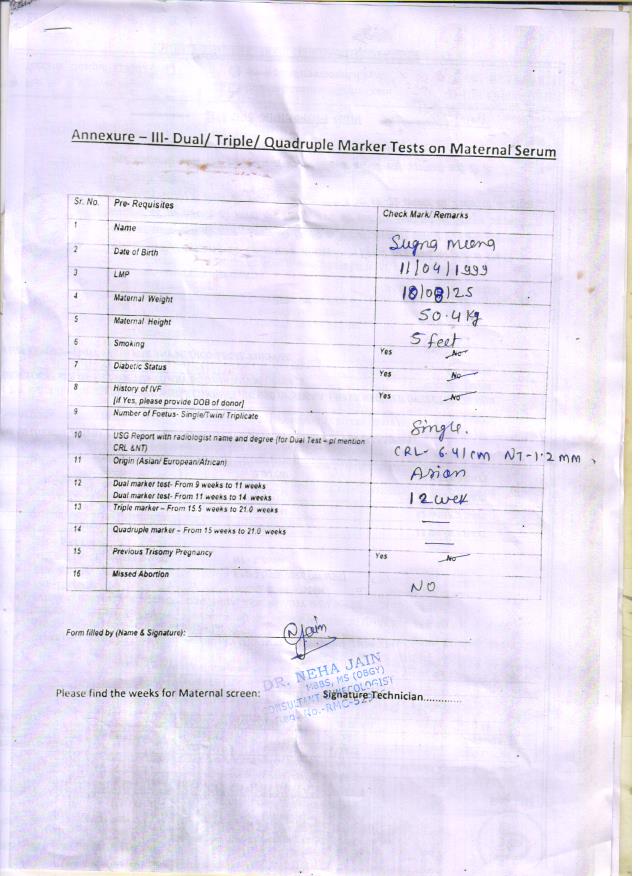 Annexure – III- Dual/ Triple/ Quadruple Marker Tests on Maternal Serum
Sr. No. Pre- Requisites Check Mark/ Remarks
1 Name Sugna Meena
2 Date of Birth 11/04/1999
3 LMP 18/08/25
4 Maternal Weight 50.4 kg
5 Maternal Height 5 feet
6 Smoking Yes No
7 Diabetic Status Yes No
8 History of IVF Yes No
[if Yes, please provide DOB of donor]
9 Number of Foetus- Single/Twin/ Triplicate Single.
10 USG Report with radiologist name and degree (for Dual Test – pl mention
CRL &NT) CRL- 6.41cm NT-1.2mm,
11 Origin (Asian/ European/African) Asian
12 Dual marker test- From 9 weeks to 11 weeks
Dual marker test- From 11 weeks to 14 weeks 12 wek
13 Triple marker – From 15.5 weeks to 21.0 weeks —
14 Quadruple marker – From 15 weeks to 21.0 weeks —
15 Previous Trisomy Pregnancy Yes No
16 Missed Abortion NO
Form filled by (Name & Signature): NJain
DR. NEHA JAIN
MBBS, MS (OBGY)
Please find the weeks for Maternal screen: Signature Technician............